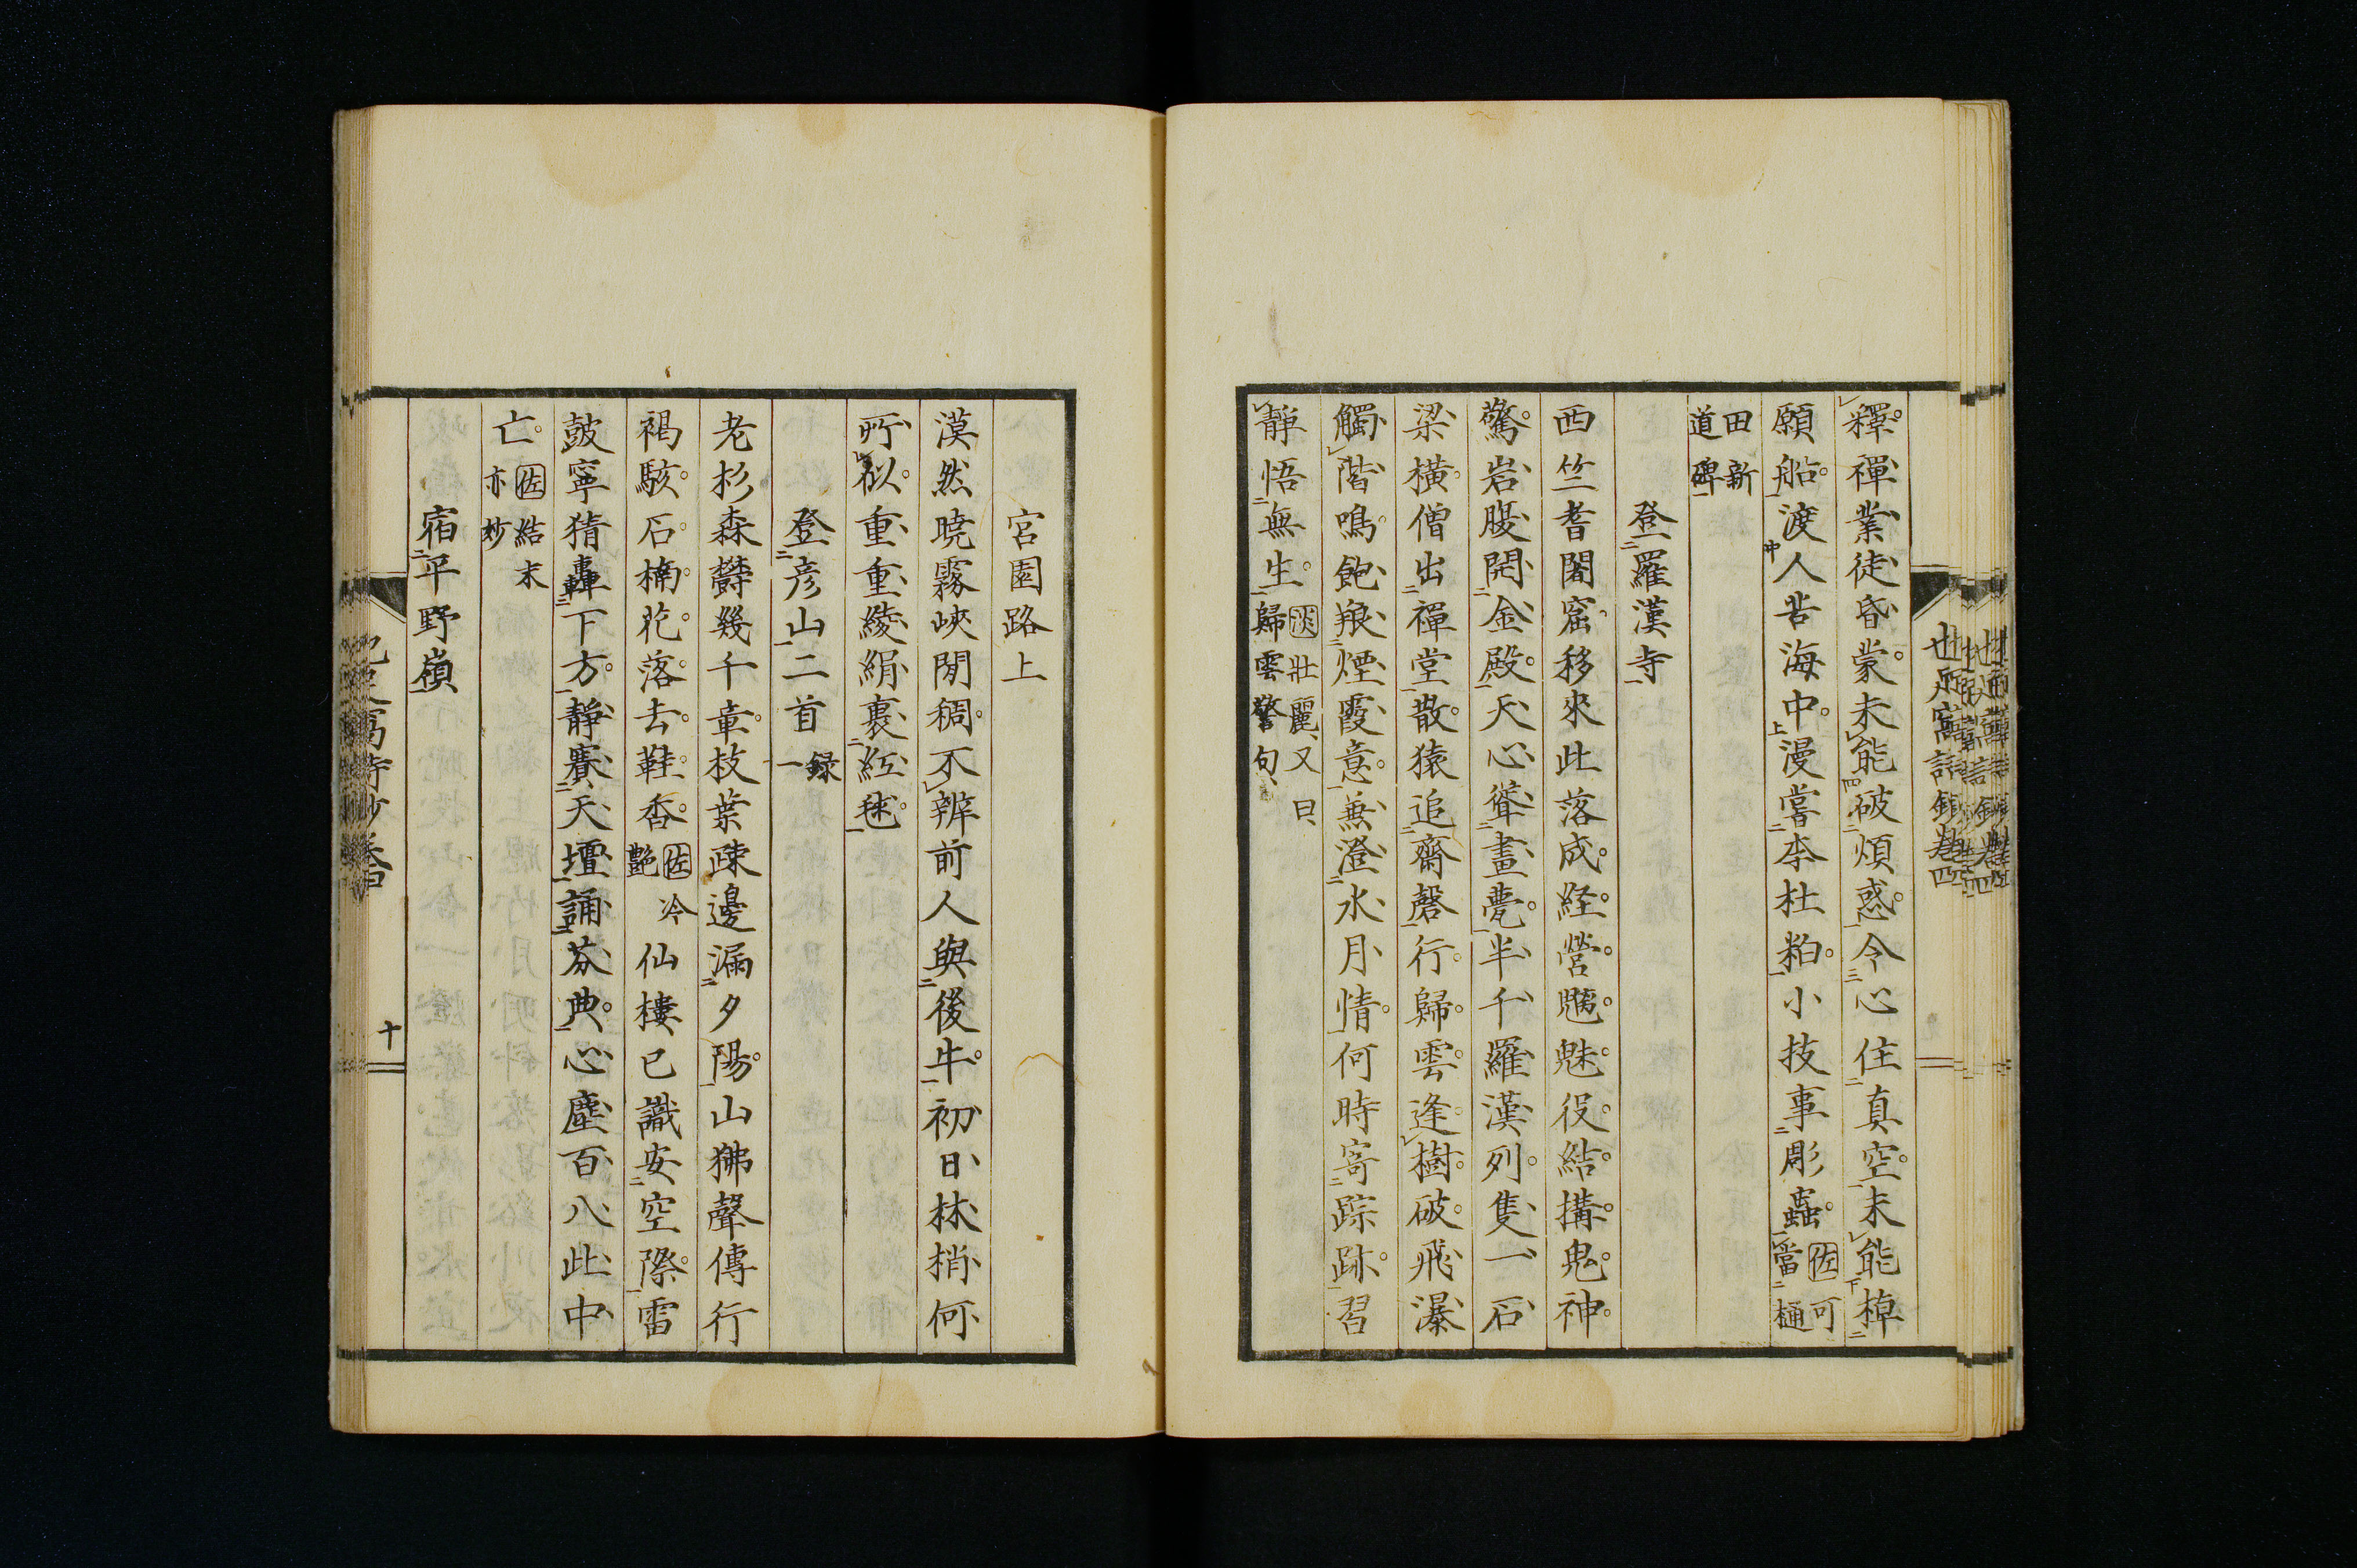 釋禪業徒昏蒙未能破煩惑令心住真空未能棹
願船渡人苦海中漫嘗李杜粕小技事彫蟲佐可當樋
田新道碑
登羅漢寺
西竺耆闍窟移來此落成経營魑魅役結搆鬼神
驚岩腹開金殿天心聳畫甍半千羅漢列隻一石
梁橫僧出禪堂散猿追齋磬行歸雲逢樹破飛瀑
觸階鳴飽飡煙霞意兼澄水月情何時寄踪跡習
靜悟無生淡壯麗又曰歸雲警句
宮園路上
漠然暁霧峽閒稠不辨前人與後牛初日林梢何
所似重重綾絹裹紅毬
登彦山二首録一
老杉森欝幾千章枝葉疎邊漏夕陽山狒聲傳行
褐駭石楠花落去鞋香佐冷艶仙樓已識安空際雷
鼓寧猜轟下方靜賽天壇誦芬典心塵百八此中
亡佐結末亦妙
宿平野嶺
十